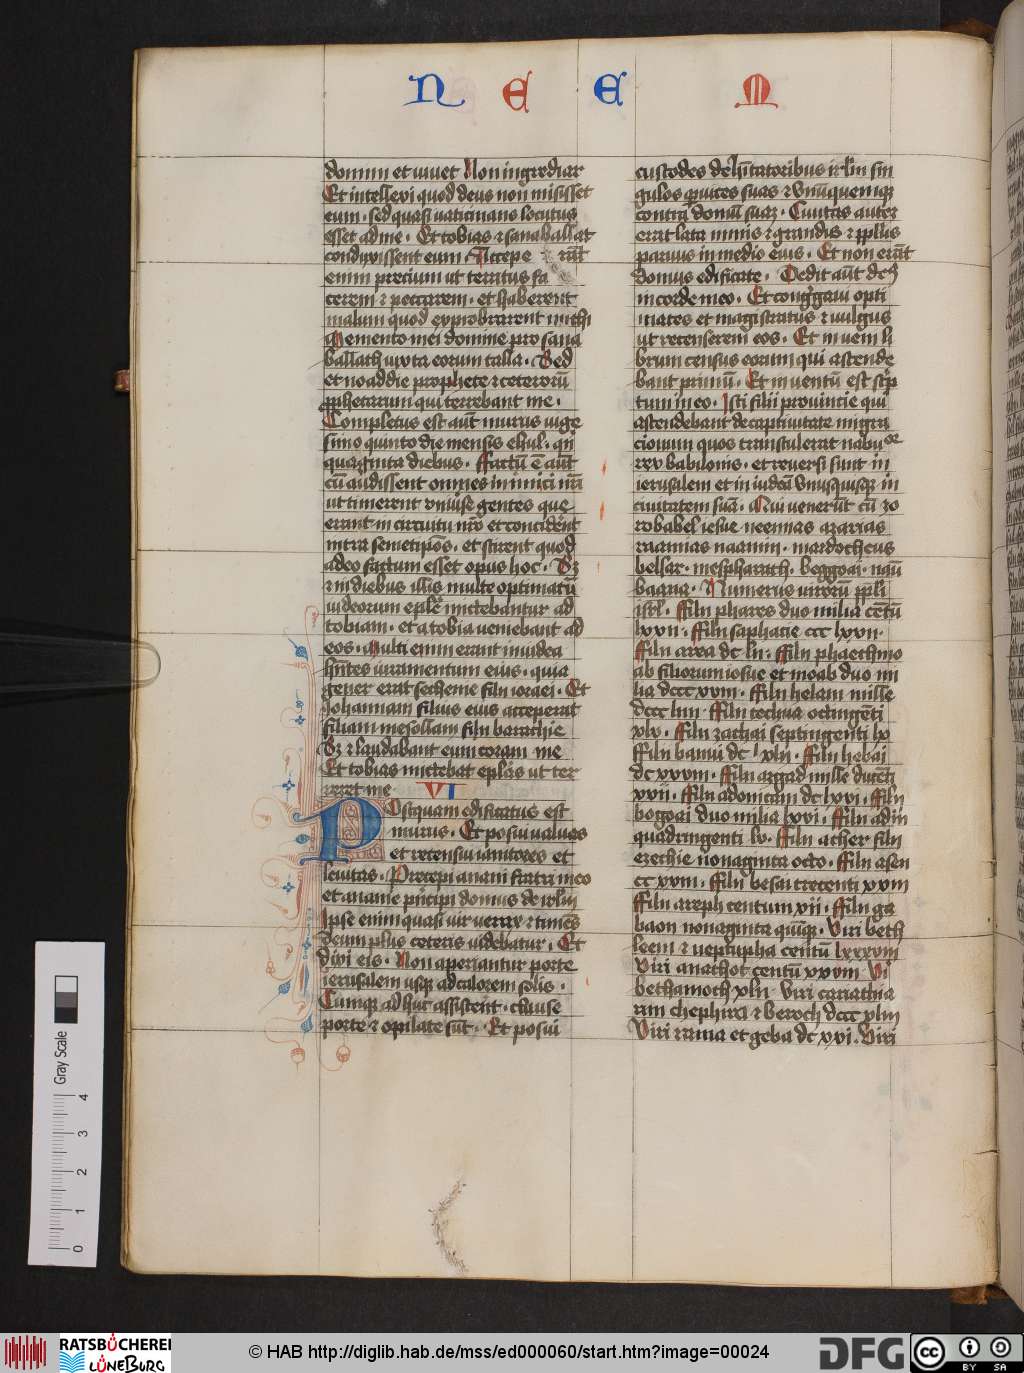 N E E M
domini et vivet Non ingrediar
Et intellexi quod deus non misisset
eum · sed quasi vaticinans locutus
esset ad me · Et tobias ⁊ sanaballat
conduxissent eum · Accepe rūt
enim precium ut territus fa
cerem ⁊ peccarem · et haberent
malum quod exprobrarent michi
Memento mei domine pro sana
ballath iuxta eorum talia · Sed
et noaddie prophete ⁊ ceterorū
pphetarum qui terrebant me ·
Completus est aūt murus vige
simo quinto die mensis elul · qn
quaginta diebus · ffactū ē aūt
cū audissent omnes inimici nr̄i
ut timerent vniuˢse gentes que
erant in circuitu nr̄o et conciderēt
intra semetipōs · et scirent quod
a deo factum esset opus hoc · Sꝫ
⁊ in diebus illis multe optimatū
iudeorum eplē mittebantur ad
tobiam · et a tobia veniebant ad
eos · Multi enim erant in iudea
hn̄tes iuramentum eius · quia
gener erat secheme filij ioraei · Et
Johannam filius eius acceperat
filiam mesollam filij barachie
Sꝫ ⁊ laudabant eum coram me
Et tobias mittebat eplās ut ter
reret me VI
Postquam edificatus est
murus · Et posui valuas
et recensiu ianitores et
levitas · Precepi anani fratri meo
et ananie p̄ncipi domus de irlm̄
Ipse enim quasi vir verax ⁊ timēs
deum plus ceteris videbatur · Et
dixi eis · Non aperiantur porte
ierusalem usqꝫ ad calorem solis ·
Cumqꝫ adhuc assistent · clause
porte ⁊ opilate sūt · Et posui
custodes de hītatoribus irlm̄ sin
gulos p̄ vices suas ⁊ vnūquemqꝫ
contra domū suaꝫ · Civitas autē
erat lata nimis ⁊ grandis ⁊ ppl̄us
parvus in medio eius · Et non erāt
domus edificate · Dedit aūt dē9
in corde meo · Et congᵉgavi opti
mates et magistratus ⁊ vulgus
ut recenserem eos · Et inveni li
brum census eorum qui ascende
bant primū · Et inventū est scᵖ
tum in eo · Isti filij provincie qui
ascendebant de captivitate migra
cionum quos transtulerat nabu
rex babilonis · et reversi sunt in
ierusalem et in iudeā vnusquisqꝫ in
civitatem suā · Qui venerūt cū zo
robabel iesue neemias azarias
raamias naamin · mardocheus
belsar · mespharath · beggoai · naū
baana · Numerus virorū ppl̄i
isrl̄ · ffilij phares duo milia cētū
lxxij · ffilij saphacie ccc lxxij ·
ffilij area dc lij · ffilij phaethmo
ab filiorum iosue et moab duo mi
lia dccc xviij · ffilij helam mille
dccc liiij · ffilij techua octingēti
xlv · ffilij zachai septingenti lx
ffilij bannui dc xlij · ffilij hebai
dc xxviij · ffilij azgad mille ducēti
xxij · ffilij adonicam dc lxvi · ffilij
bogoai duo milia lxvi · ffilij adin
quadringenti lv · ffilij ather filij
ezechie nonaginta octo · ffilij asen
cc xviij · ffilij besai trecenti xxiiij
ffilij areph centum xij · ffilij ga
baon nonaginta quīqꝫ · Viri beth
leem ⁊ neptupha centū lxxxviij
Viri anathot centū xxviij Vi
bethamoth xlij · Viri cariathia
rim chephira ⁊ beroth dccc xliij
Viri rama et geba dc xxi · Viri
Gray Scale
0 1 2 3 4
RATSBÜCHEREI
LÜNEBURG
© HAB http://diglib.hab.de/mss/ed000060/start.htm?image=00024
DFG
cc BY SA